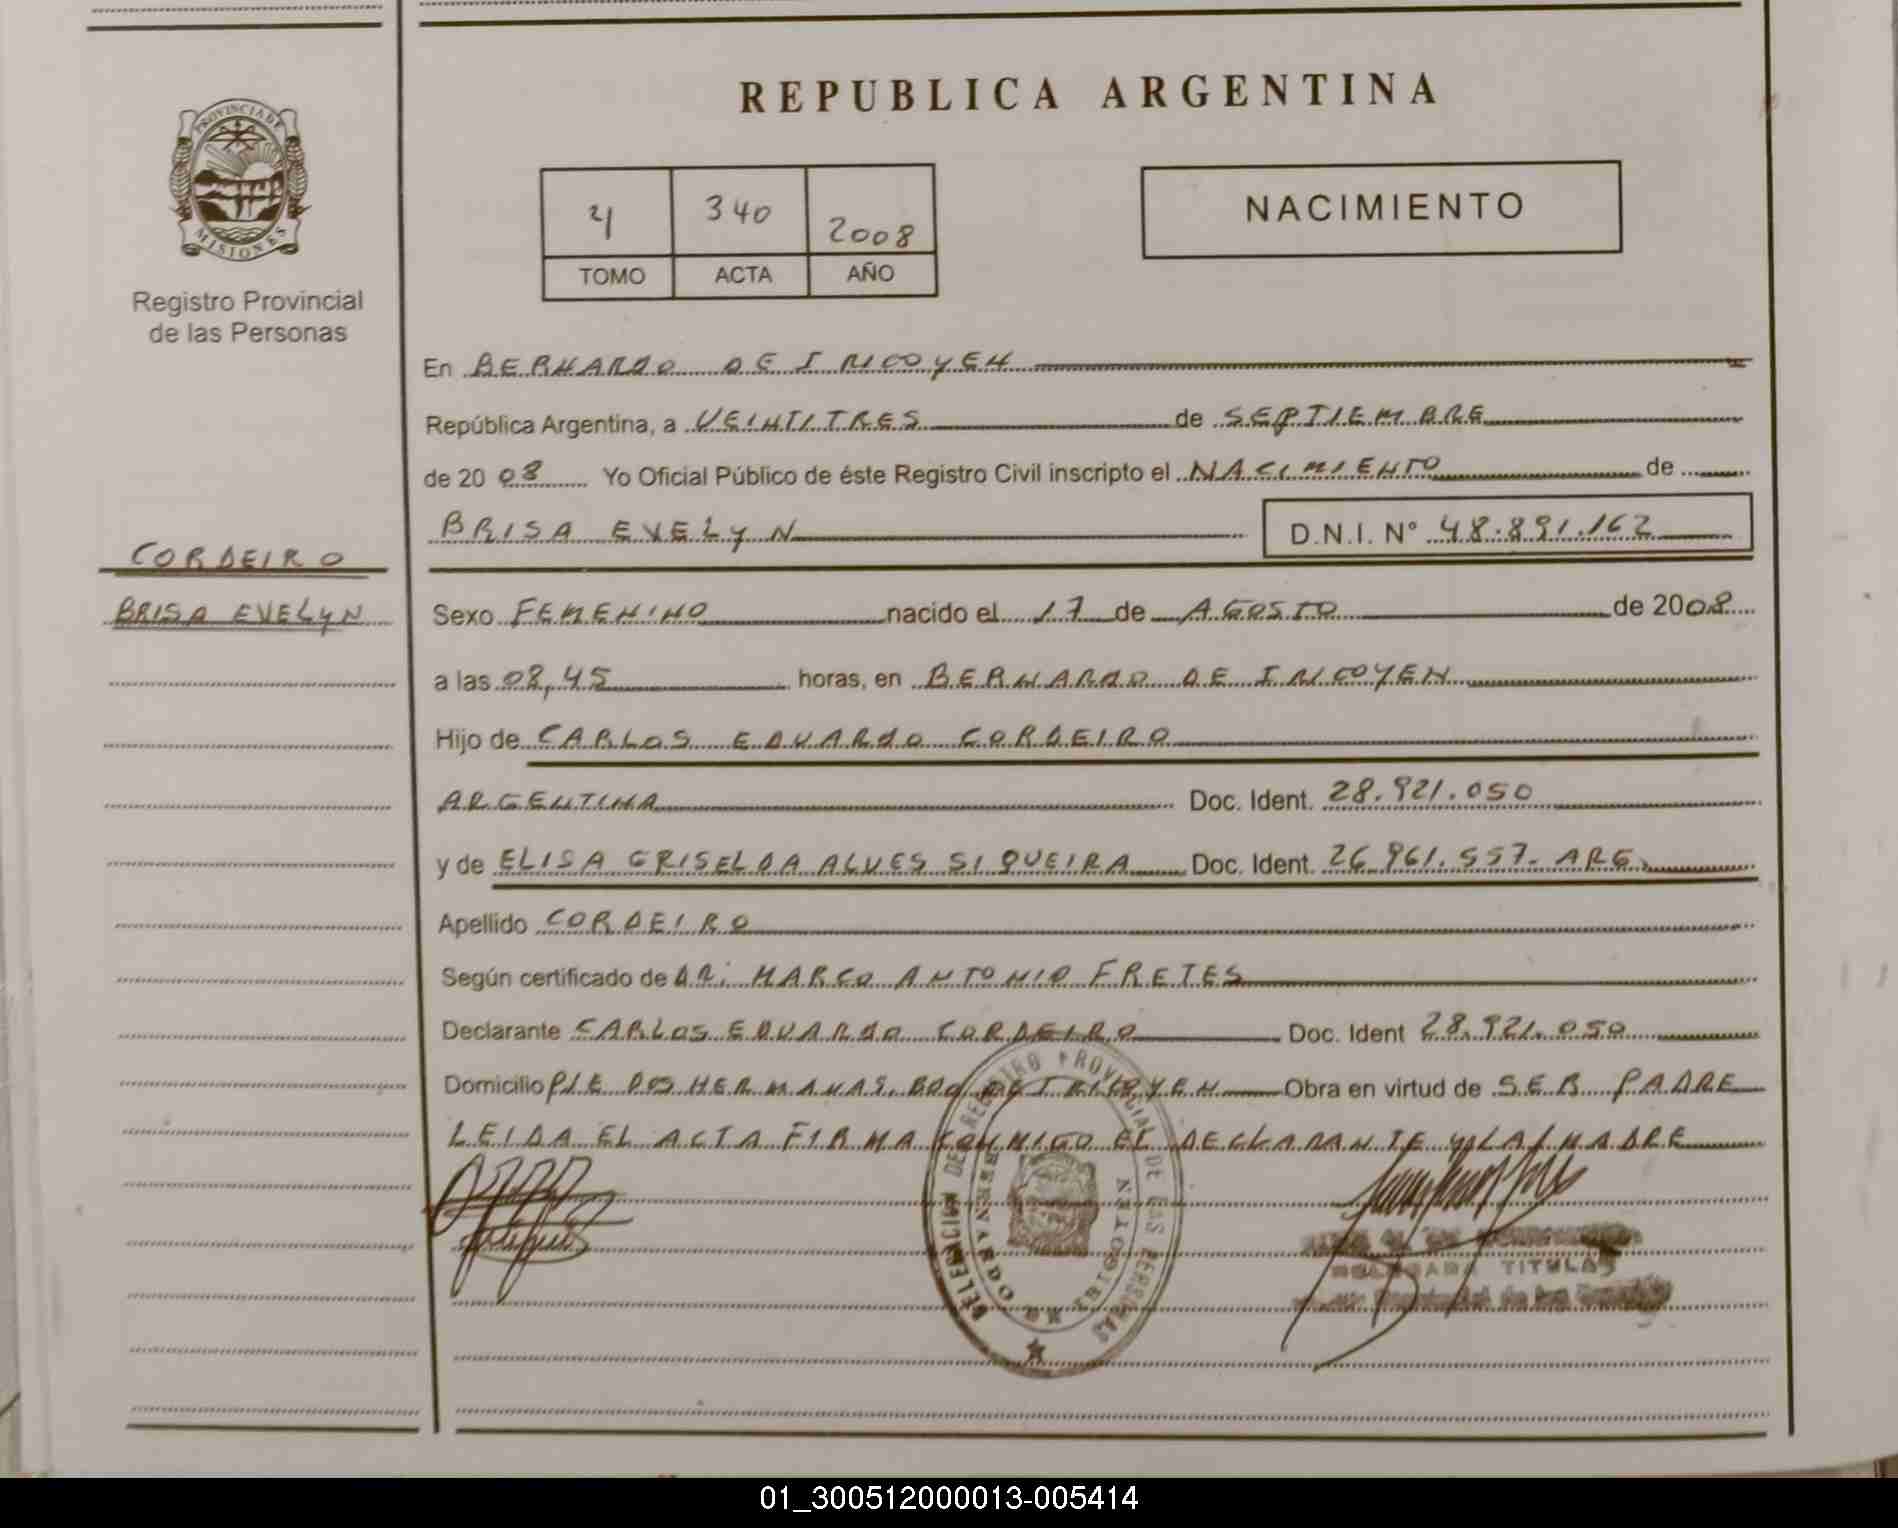 PROVINCIA DE
MISIONES
Registro Provincial
de las Personas
CORDEIRO
BRISA EVELYN
REPUBLICA ARGENTINA
4 340 2008
TOMO ACTA AÑO
NACIMIENTO
En BERNARDO DE IRIGOYEN
República Argentina, a VEINTITRES de SEPTIEMBRE
de 2008 Yo Oficial Público de éste Registro Civil inscripto el NACIMIENTO de
BRISA EVELYN D.N.I. N° 48.891.162
Sexo FEMENINO nacido el 17 de AGOSTO de 2008
a las 08,45 horas, en BERNARDO DE IRIGOYEN
Hijo de CARLOS EDUARDO CORDEIRO
ARGENTINA Doc. Ident. 28.921.050
y de ELISA GRISELDA ALVES SIQUEIRA Doc. Ident. 26.961.557- ARG.
Apellido CORDEIRO
Según certificado de DR: MARCO ANTONIO FRETES
Declarante CARLOS EDUARDO CORDEIRO Doc. Ident 28.921.050
Domicilio PJE DOS HERMANAS, BDO DE IRIGOYEN Obra en virtud de SER PADRE
LEIDA EL ACTA FIRMA CONMIGO EL DECLARANTE Y LA MADRE
DELEGACION DEL REGISTRO PROVINCIAL DE LAS PERSONAS
BERNARDO DE IRIGOYEN
DELEGADA TITULAR
01_300512000013-005414